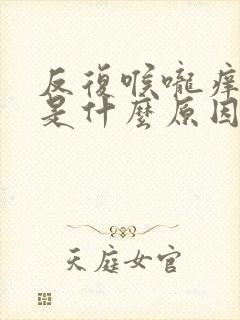 反復喉嚨痒
是什麼原因
天庭女官